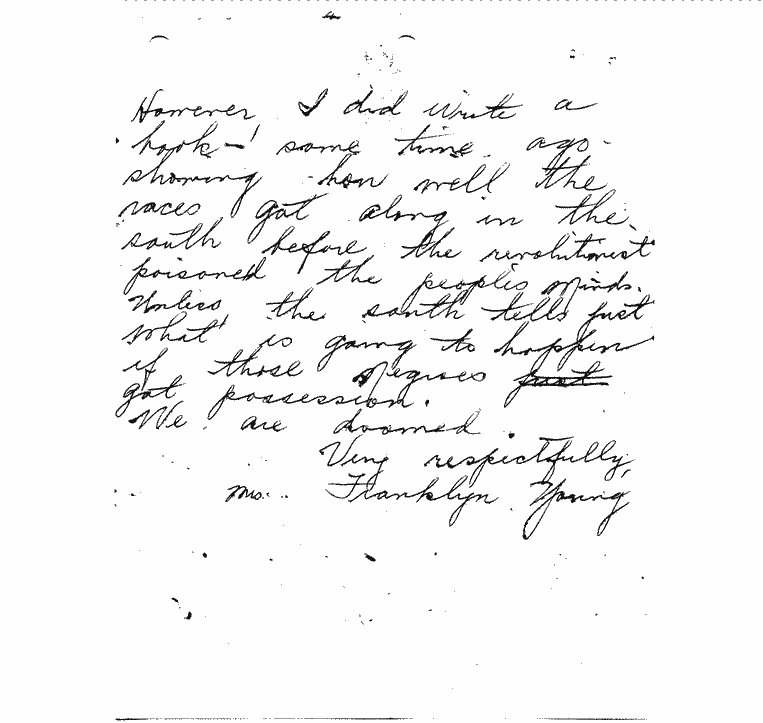 However, I did write a
book—! some time ago-
showing how well the
races got along in the
south before the revolutionist
poisoned the peoples minds.
Unless the south tells just
what is going to happen
if those Negroes just
got possession.
We are doomed.
Very respectfully,
Mrs. Franklyn Young